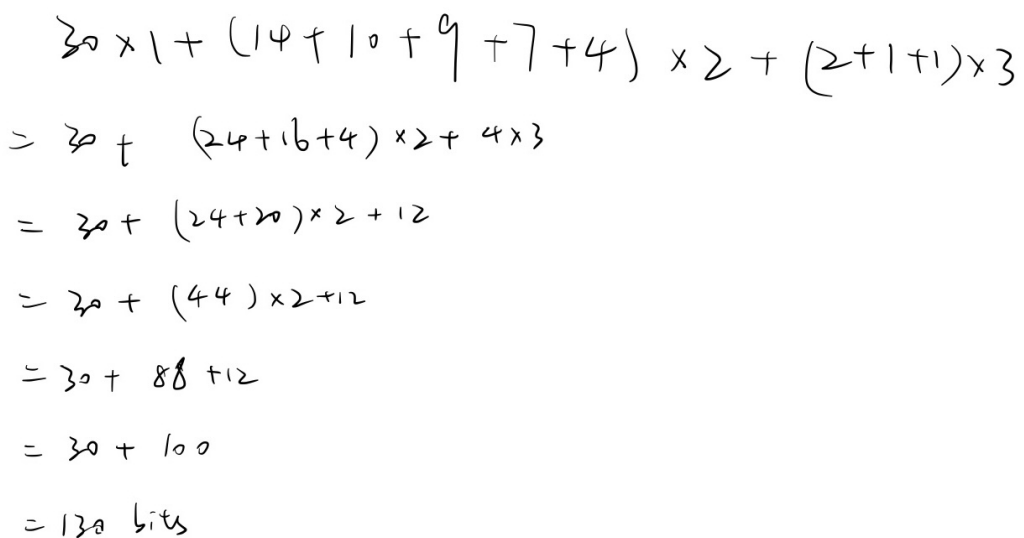 30×1+(14+10+9+7+4)×2+(2+1+1)×3
=30+(24+16+4)×2+4×3
=30+(24+20)×2+12
=30+(44)×2+12
=30+88+12
=30+100
=130 bits